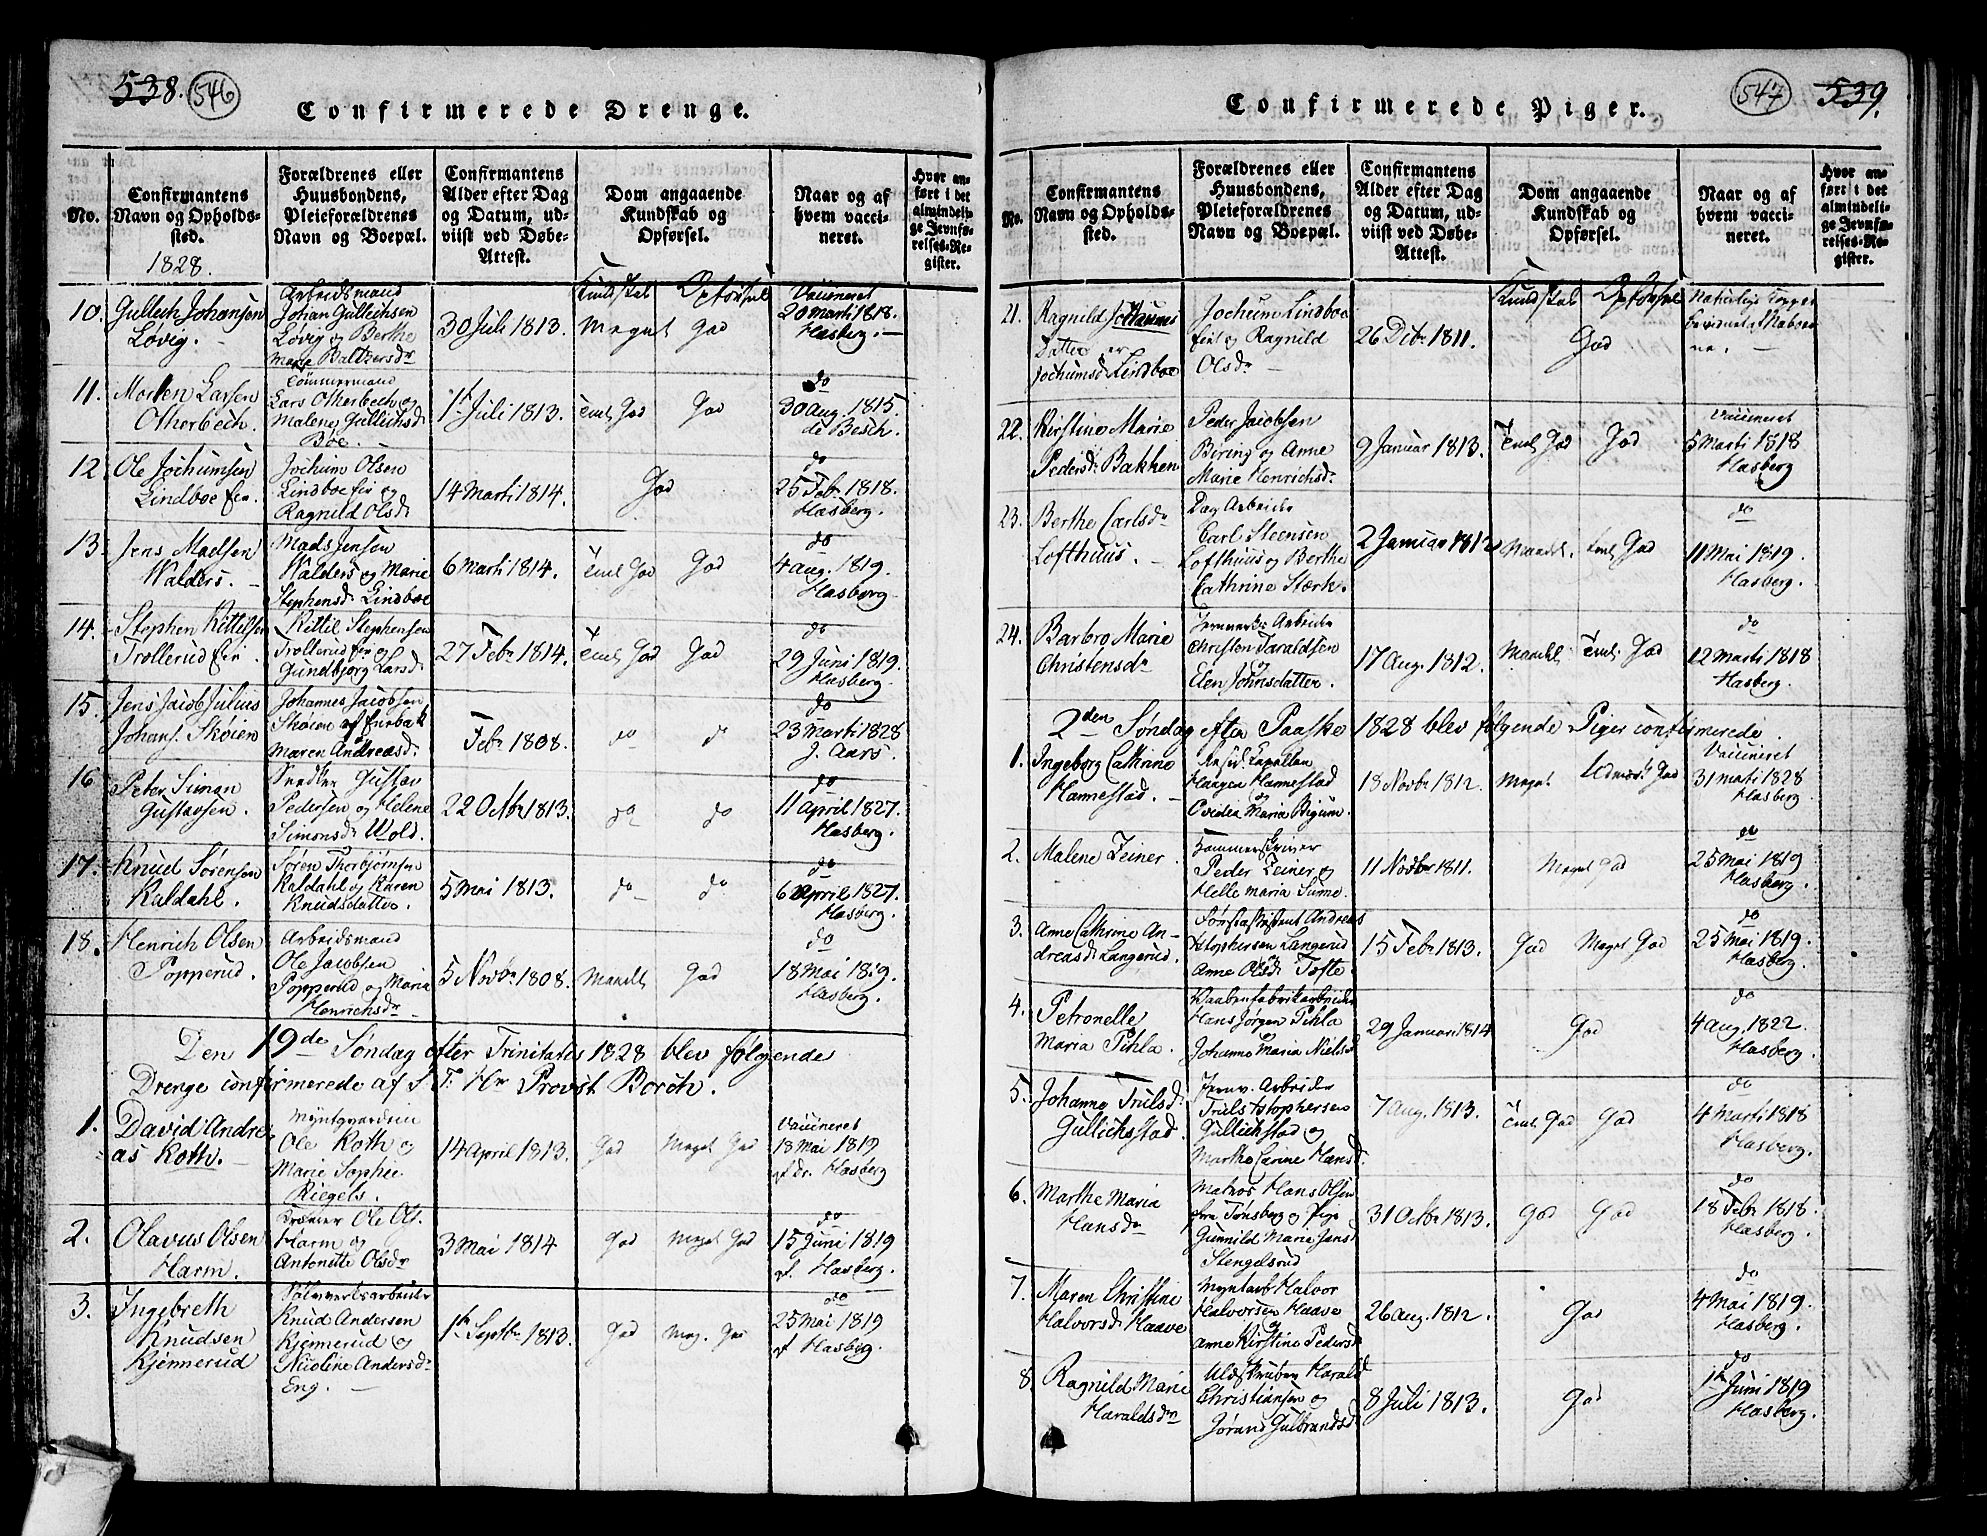 538. 546
Confirmerede Drenge.
No.
Confirmantens
Navn og Opholds-
sted.
Forældrenes eller
Huusbondens,
Pleieforældrenes
Navn og Boepæl.
Confirmantens
Alder efter Dag
og Datum, ud-
viist ved Døbe-
Attest.
Dom angaaende
Kundskab og
Opførsel.
Naar og af
hvem vacci-
neret.
Hvor an-
ført i det
almindeli-
ge Jevnfø-
relses-Re-
gister.
1828.
Kundskab Opførsel
10. Gullich Johansen
Løvig.
Arbeidsmand
Johan Gullichsen
Løvig og Berthe
Marie Baltzersdr
30 Juli 1813.
Meget God
Vaccineret
20 Marti 1818.
Hasberg.
11. Morten Larsen
Otherbech.
Tømmermand
Lars Otherbech og
Malene Gullichsd:
Böe.
1st Juli 1813.
Teml God God
do
30 Aug. 1815.
de Besch.
12. Ole Jochumsen
Lindboe Eie.
Jochum Olsen
Lindboe Eie og
Ragnild Olsd:
14 Marti 1814.
God
do
25 Febr 1818.
Hasberg.
13. Jens Madsen
Walders.
Mads Jensen
Walders og Marie
Stephensd: Lindboe
6 Marti 1814.
Teml God God
do
4 Aug. 1819.
Hasberg
14. Stephen Kittilsen
Trollerud Eie.
Kittil Stephensen
Trollerud Eie og
Gundbjørg Larsd:
27 Febr 1814.
Teml God God
do
29 Juni 1819.
Hasberg.
15. Jens Jacob Julius
Johans. Skøien
Johannes Jacobsen
Skøien af
Maren Andreasd:
Febr 1808.
do d
do
23 Marti 1828
J. Aars.
16. Peter Siman
Gustavsen.
Snedker Gustav
Pedersen og Helene
Simonsd: Wold.
22 Octbr 1813.
do do
do
11 April 1827.
Hasberg.
17. Knud Sørensen
Kaldahl.
Søren Thorbjørnsen
Kaldahl og Karen
Knudsdatter.
5 Mai 1813.
do do
do
6 April 1827.
Hasberg.
18. Henrich Olsen
Popperud.
Arbeidsmand
Ole Jacobsen
Popperud og Maria
Henrichsdr
5 Novbr 1808.
Maadel. God
do
18 Mai 1819.
Hasberg.
Den 19de Søndag efter Trinitatis 1828 blev følgende
Drenge confirmerede af S. T. Hr Provst Borch.
1. David Andre-
as Roth.
Myntguardein
Ole Roth og
Marie Sophie
Riegels.
14 April 1813.
God Meget God
Vaccineret
18 Mai 1819
af Dr. Hasberg
2. Olavus Olsen
Harm.
Ole Ols.
Harm og
Antonette Olsdr
3 Mai 1814
God Meget God
do
15 Juni 1819
af. Hasberg.
3. Ingebreth
Knudsen
Kjennerud
Sølvverksarbeider
Knud Andersen
Kjennerud og
Nicoline Andersdr
Eng.
1ste Septbr 1813.
God Meg. God
do
25 Mai 1819
af Hasberg.
547 539.
Confirmerede Piger.
No.
Confirmantens
Navn og Opholds-
sted.
Forældrenes eller
Huusbondens,
Pleieforældrenes
Navn og Boepæl.
Confirmantens
Alder efter Dag
og Datum, ud-
viist ved Døbe-
Attest.
Dom angaaende
Kundskab og
Opførsel.
Naar og af
hvem vacci-
neret.
Hvor an-
ført i det
almindeli-
ge Jevnfø-
relses-Re-
gister.
Kundskab Opførsel
21. Ragnild
Datter er
Jochumsd: Lindboe
Jochum Lindboe
Eie og Ragnild
Olsdr
26 Dcbr 1811.
God
Naturlige Kopper
bevidnet af Naboer-
ne.
22. Kirstine Marie
Pedersdr Bakken
Peder Jacobsen
Biring og Anne
Marie Henrichsdr
9 Januar 1813.
Teml God God
Vaccineret
5 Marti 1818
Hasberg
23. Berthe Carlsdr
Lofthuus.
Dag Arbeider
Carl Steensen
Lofthuus og Berthe
Cathrine Stærk.
2 Januar 1812
Maadel. teml God
do
11 Mai 1819.
Hasberg.
24. Barbro Marie
Christensdr
Jernverks Arbeider
Christen Taraldsen
og
Elen Johnsdatter.
17 Aug. 1812.
Maadel Teml God
do
12 Marti 1818
Hasberg.
2den Søndag efter Paaske 1828 blev følgende Piger confirmerede.
1. Ingeborg Cathrine
Hannestad.
Resid. Capellan
Haagen Hannestad
og
Ovidia Maria Bigum.
18 Novbr 1812.
Meget Udmærk God
Vaccineret
31 Marti 1828
Hasberg
2. Malene Zeiner.
Peder Zeiner og
Helle Maria
11 Novbr 1811.
Meget God
do
25 Mai 1819
Hasberg
3. Anne Cathrine An-
dreasd: Langerud.
Andreas
Christophersen Langerud
Anne Olsdr Tofte
15 Febr 1813.
God Meget God
do
25 Mai 1819.
Hasberg.
4. Petronelle
Maria Pihla.
Vaabenfabrikarbeider
Hans Jørgen Pihla
Johanne Maria Nielsd
29 Januari 1814
God
do
4 Aug. 1822.
Hasberg.
5. Johanne Trulsd:
Gullichstad.
Jernv. Arbeider
Truls Christophersen
Gullichstad og
Marthe Carine Hansd:
7 Aug. 1813.
Teml God God
do
4 Marti 1818
Hasberg.
6. Marthe Maria
Hansdr
Matros Hans Olsen
fra Tønsberg og Pige
Gunnild Marie Jensd
Stengelsrud
31 Octbr 1813.
God God
do
18 Febr 1818.
Hasberg.
7. Maren Christine
Halvorsd: Haave
Myntarb Halvor
Halvorsen Haave
og
Anne Kirstine Pedersd
26 Aug. 1812.
God
do
4 Mai 1819.
Hasberg.
8. Ragnild Marie
Haraldsdr
Harald
Christiansen og
Jørand Gulbrandsd:
8 Juli 1813.
God
do
1ste Juni 1819
Hasberg.